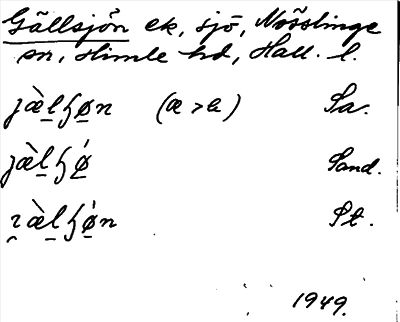 Gällsjön ek, sjö, Nösslinge
sn, Himle hd, Hall. l.
jæ̀lɧøn (æ > a) Sa.
jæ̀lɧǿ Sand.
ɿæ̀lɧǿn St.
1949.